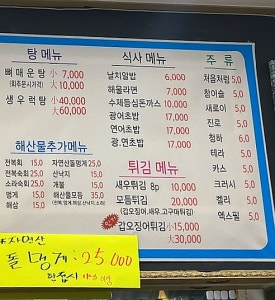 탕 메뉴
뼈매운탕 小 7,000
(회주문시가격) 大 10,000
생우럭탕 小 40,000
大 60,000
해산물추가메뉴
전복회 15,0
전복회 25,0
소라숙회 25,0
멍게 15,0
해삼 15,0
자연산돌멍게 25,0
산낙지 15,0
개불 15,0
해산물모듬 35,0
식사 메뉴
날치알밥 6,000
해물라면 7,000
수제등심돈까스 10,000
광어초밥 17,000
연어초밥 17,000
광,연초밥 17,000
튀김 메뉴
새우튀김 8p 10,000
모듬튀김 20,000
(갑오징어,새우,고구마튀김)
갑오징어튀김 小 15,000
大 30,000
주 류
처음처럼 5,0
참이슬 5,0
새로이 5,0
진로 5,0
청하 5,0
테라 5,0
카스 5,0
크러시 5,0
켈리 5,0
엑스필 5,0
*자연산
돌멍게: 25,000
한접시